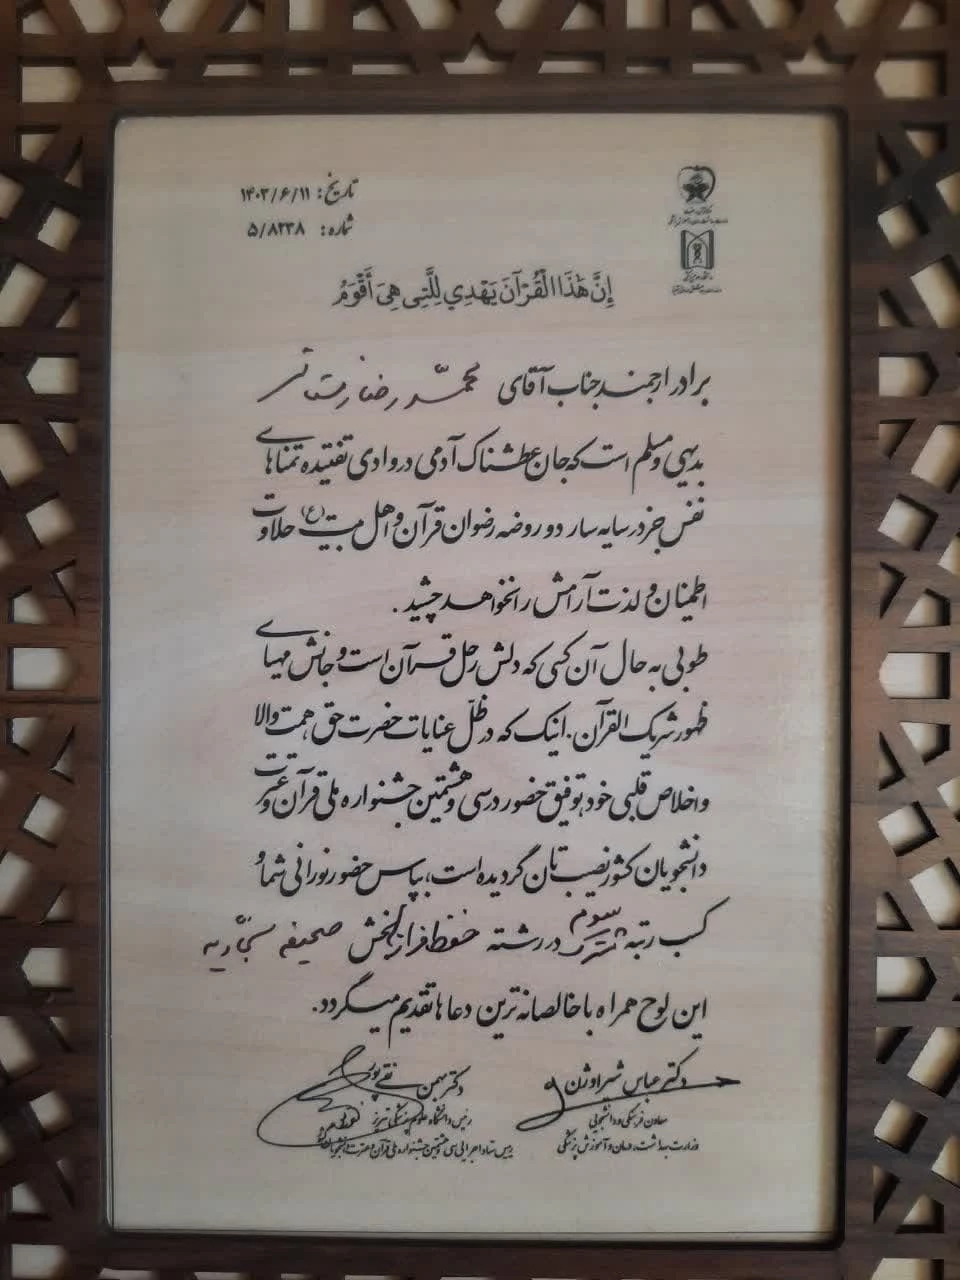 تاریخ: ۱۴۰۲/۶/۱۱
شماره: ۵/۸۲۳۸
إِنَّ هَٰذَا الْقُرْآنَ يَهْدِي لِلَّتِي هِيَ أَقْوَمُ
برادر ارجمند جناب آقای محمّد رضا
بدیهی و مسلم است که جان عطشناک آدمی در وادی تفتیده تمناهای
نفس جز در سایه سار دو روضه رضوان قرآن و اهل بیت (ع) حلاوت
اطمینان و لذت آرامش را نخواهد چشید .
طوبی به حال آن کسی که دلش رحل قرآن است و جانش مهیای
ظهور شریک القرآن. اینک که در ظلّ عنایات حضرت حق، همت والا
و اخلاص قلبی خود، توفیق حضور در سی و هشتمین جشنواره ملی قرآن و عترت
دانشجویان کشور نصیب تان گردیده است، بپاس حضور نورانی شما و
کسب رتبه سوم در رشته حفظ فرازبخش صحیفه سجّادیه
این لوح همراه با خالصانه ترین دعاها تقدیم میگردد.
دکتر عباس شیراوژن
معاون فرهنگی و دانشجویی
وزارت بهداشت، درمان و آموزش پزشکی
دکتر بهمن نقی پور
رئیس دانشگاه علوم پزشکی تبریز
رییس ستاد اجرایی سی و هشتمین جشنواره ملی قرآن و عترت دانشجویان